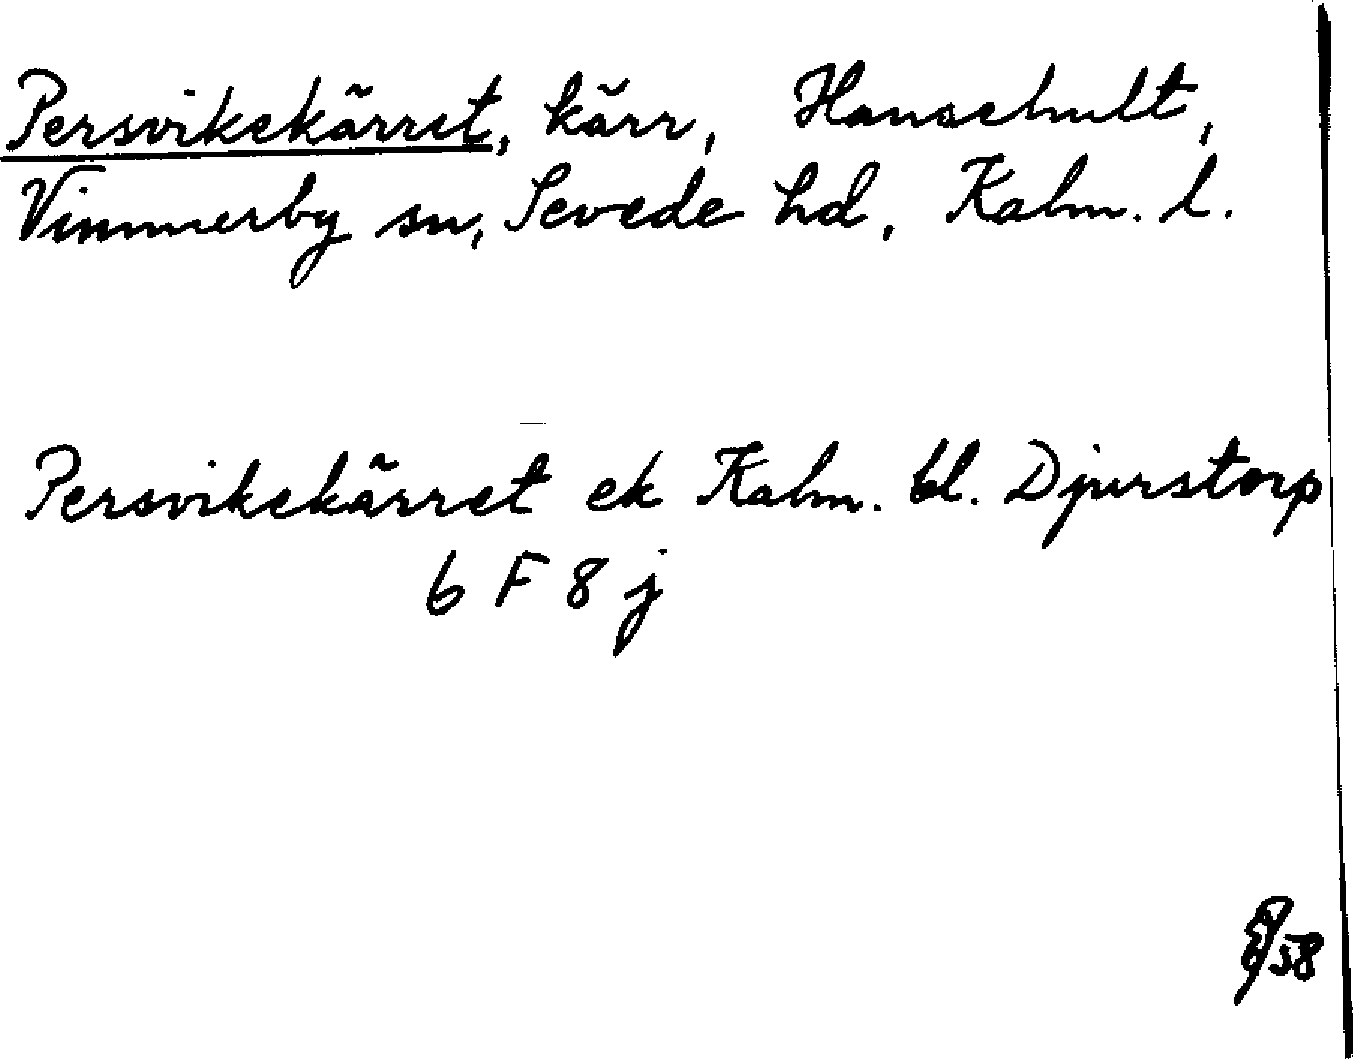 Persvikekärret, kärr, Hansehult,
Vimmerby sn, Sevede hd, Kalm. l.
Persvikekärret ek Kalm. bl. Djurstorp
6 F 8 j
58